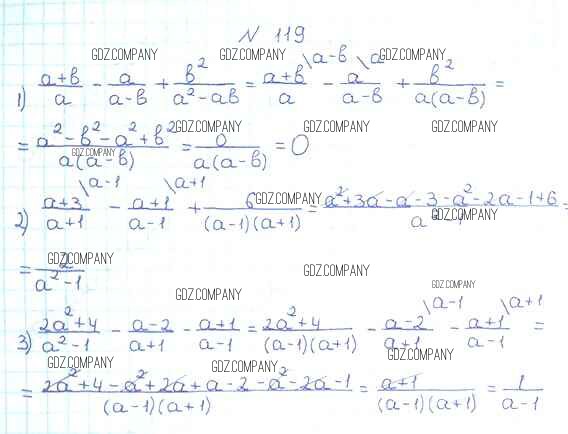 N 119
GDZ.COMPANY GDZ.COMPANY GDZ.COMPANY
1) (a+b)/a − a/(a−b) + b²/(a²−ab) = (a+b)/a \a−b − a/(a−b) \a + b²/(a(a−b)) =
GDZ.COMPANY GDZ.COMPANY GDZ.COMPANY GDZ.COMPANY
= (a²−b²−a²+b²)/(a(a−b)) = 0/(a(a−b)) = 0
2) (a+3)/(a+1) \a−1 − (a+1)/(a−1) \a+1 + 6/((a−1)(a+1)) = (a²+3a−a−3−a²−2a−1+6)/a =
GDZ.COMPANY GDZ.COMPANY
GDZ.COMPANY GDZ.COMPANY
= 2/(a²−1)
GDZ.COMPANY GDZ.COMPANY
3) (2a²+4)/(a²−1) − (a−2)/(a+1) − (a+1)/(a−1) = (2a²+4)/((a−1)(a+1)) − (a−2)/(a+1) \a−1 − (a+1)/(a−1) \a+1 =
GDZ.COMPANY GDZ.COMPANY GDZ.COMPANY
= (2a²+4−a²+2a+a−2−a²−2a−1)/((a−1)(a+1)) = (a+1)/((a−1)(a+1)) = 1/(a−1)